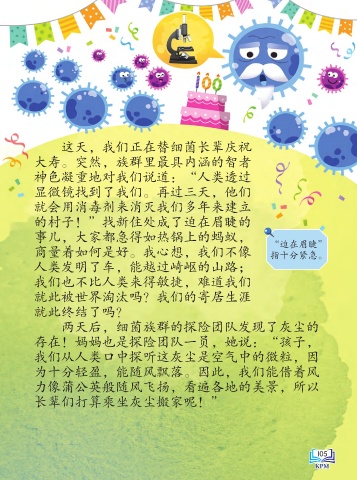 100
这天，我们正在替细菌长辈庆祝
大寿。突然，族群里最具内涵的智者
神色凝重地对我们说道：“人类透过
显微镜找到了我们。再过三天，他们
就会用消毒剂来消灭我们多年来建立
的村子！”找新住处成了迫在眉睫的
事儿，大家都急得如热锅上的蚂蚁，
商量着如何是好。我心想，我们不像
人类发明了车，能越过崎岖的山路；
我们也不比人类来得敏捷，难道我们
就此被世界淘汰吗？我们的寄居生涯
就此终结了吗？
“迫在眉睫”
指十分紧急。
两天后，细菌族群的探险团队发现了灰尘的
存在！妈妈也是探险团队一员，她说：“孩子，
我们从人类口中探听这灰尘是空气中的微粒，因
为十分轻盈，能随风飘落。因此，我们能借着风
力像蒲公英般随风飞扬，看遍各地的美景，所以
长辈们打算乘坐灰尘搬家呢！”
105
KPM